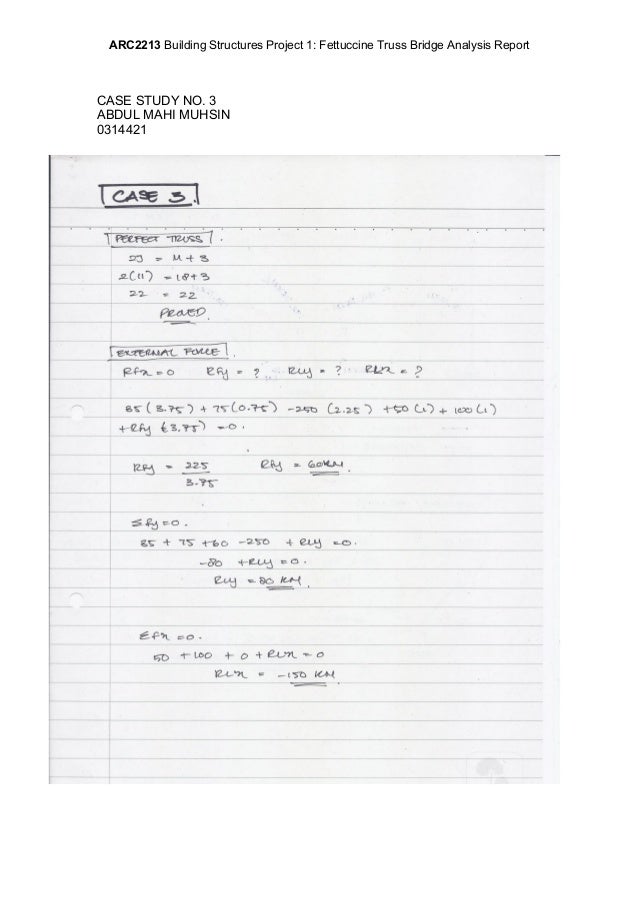 ARC2213 Building Structures Project 1: Fettuccine Truss Bridge Analysis Report
CASE STUDY NO. 3
ABDUL MAHI MUHSIN
0314421
CASE 3.
PERFECT TRUSS .
2J = M + 3
2(11) = 18+3
22 = 22
PROVED.
EXTERNAL FORCE .
RFx = 0 RFy = ? RLy = ? RLx = ?
85 (3.75) + 75 (0.75) -250 (2.25) +50 (1) + 100 (1)
+RFy (3.75) =0.
RFy = 225 RFy = 60KN.
3.75
Σfy=0.
85 + 75 +60 -250 + RLy =0.
-80 +RLy =0.
RLy = 80 KN.
Σfx =0.
50 +100 + 0 + RLx = 0
RLx = -150 KN.